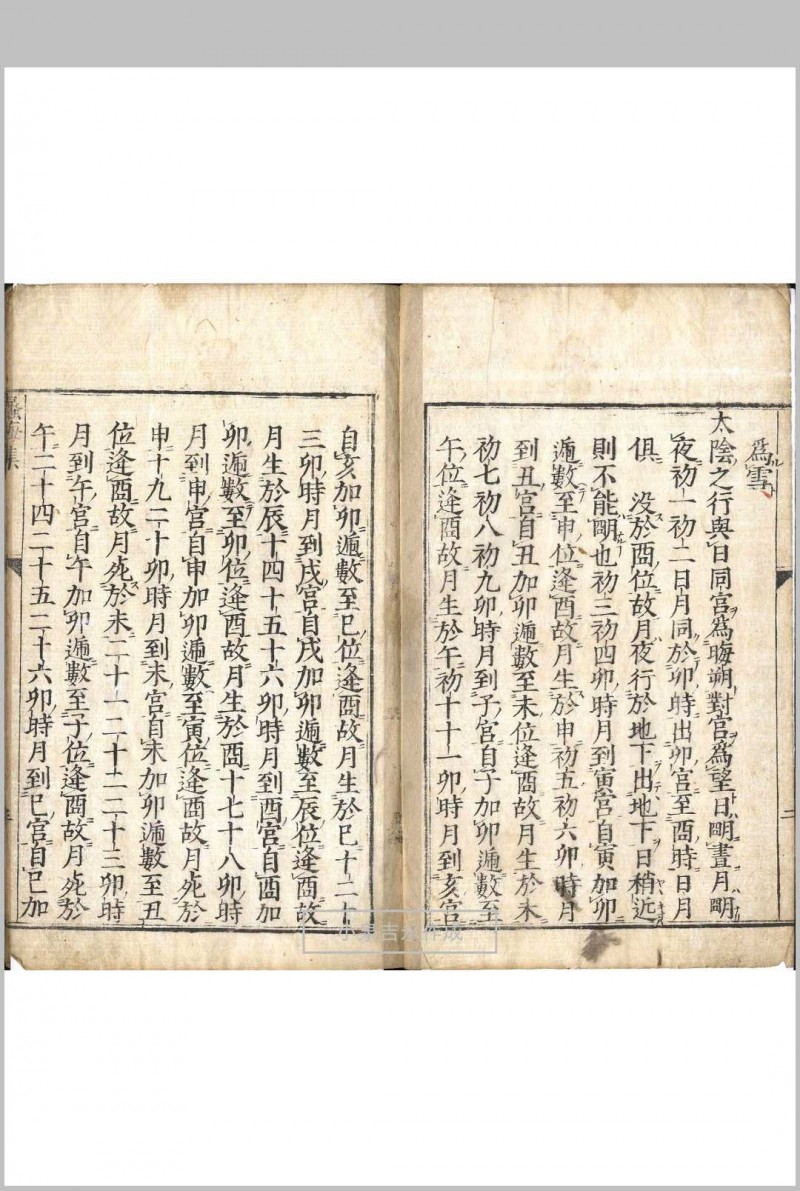 爲雪
太陰之行與日同宮爲晦朔對宮爲望日明晝月明
夜初一初二日月同於卯時出卯宮至酉時日月
俱 没於酉位故月夜行於地下出地下日稍近
則不能明也初三初四卯時月到寅宮自寅加卯
遁數至申位逢酉故月生於申初五初六卯時月
到丑宮自丑加卯遁數至未位逢酉故月生於未
初七初八初九卯時月到子宮自子加卯遁數至
午位逢酉故月生於午初十十一卯時月到亥宮
自亥加卯遁數至巳位逢酉故月生於巳十二十
三卯時月到戌宮自戌加卯遁數至辰位逢酉故
月生於辰十四十五十六卯時月到酉宮自酉加
卯遁數至卯位逢酉故月生於酉十七十八卯時
月到申宮自申加卯遁數至寅位逢酉故月死於
申十九二十卯時月到未宮自未加卯遁數至丑
位逢酉故月死於未二十一二十二二十三卯時
月到午宮自午加卯遁數至子位逢酉故月死於
午二十四二十五二十六卯時月到巳宮自巳加
海集